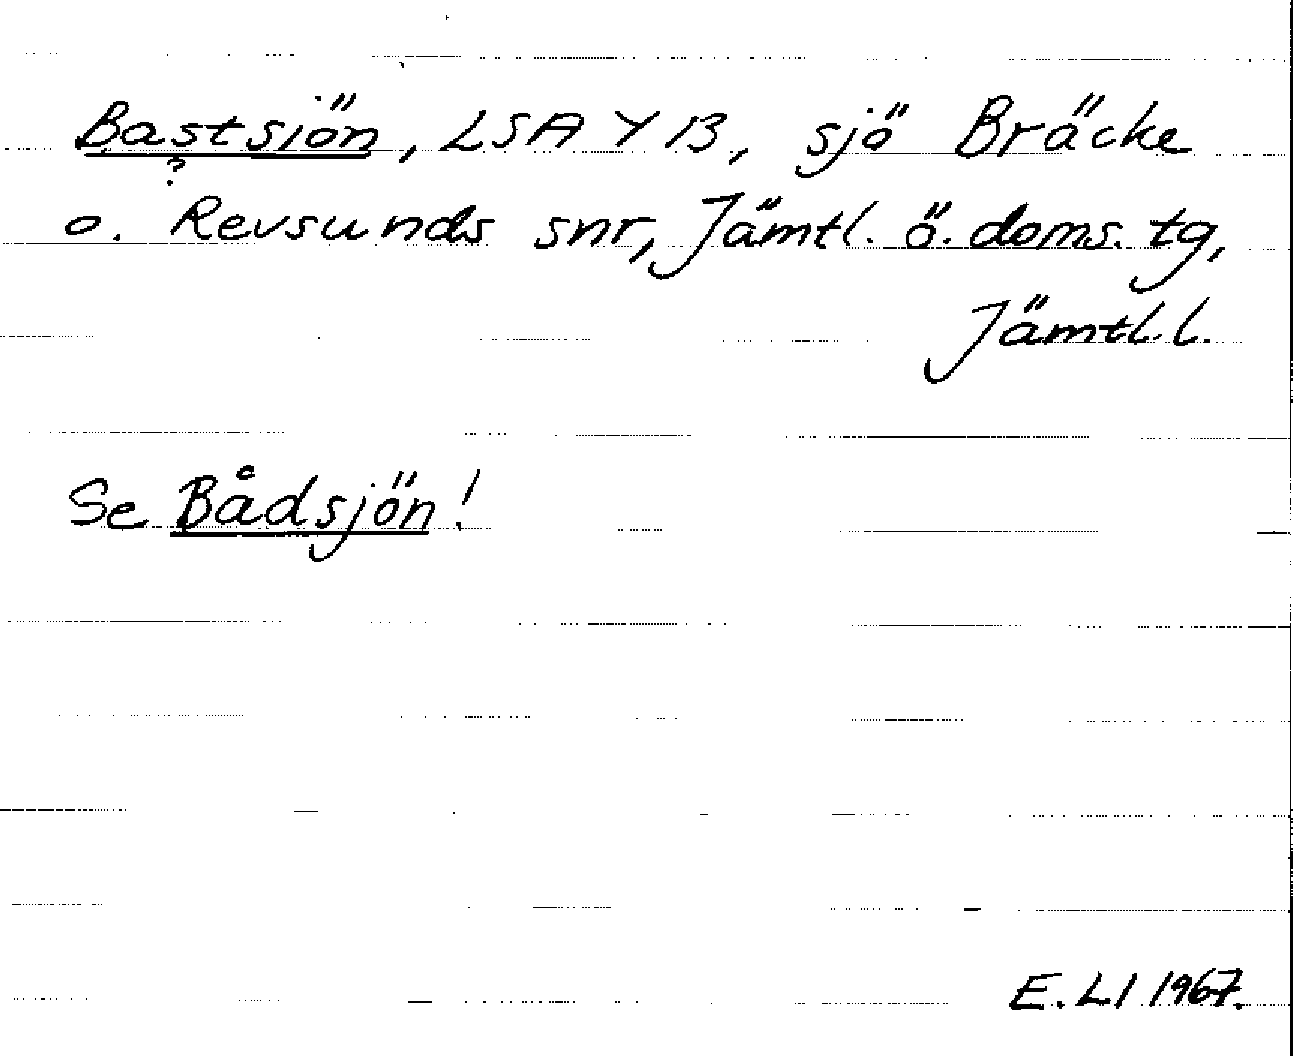 Bastsiön, LSA Y 13, sjö Bräcke
?
o. Revsunds snr, Jämtl. ö. doms. tg,
Jämtl.l.
Se Bådsjön!
E. L1 1967.